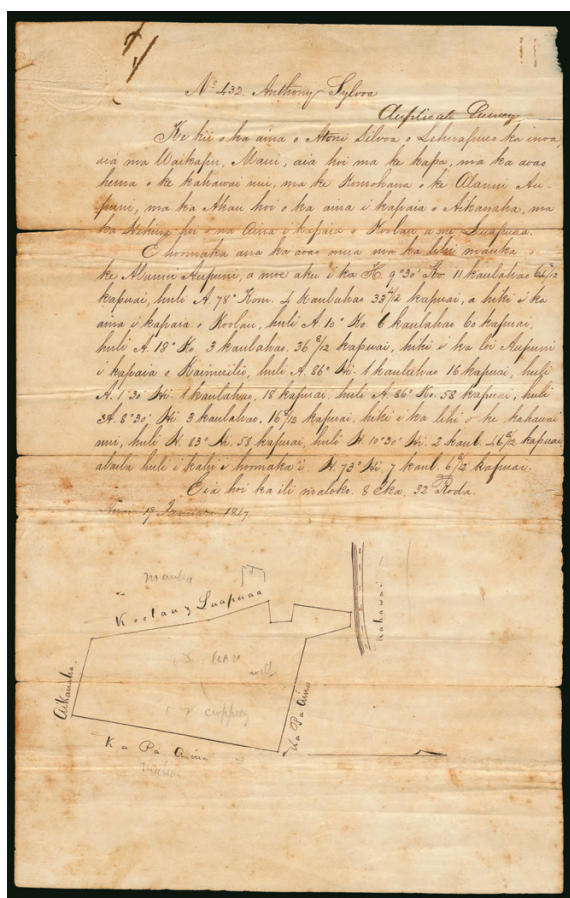 No 432. Anthony Sylva
Duplicate Survey
Ke kii o ka aina o Atoni Silva o Lehuapueo ka inoa
aia ma Waikapu, Maui, aia hoi ma ke kapa, ma ka aoao
hema o ke kahawai nui, ma ke Komohana o ke Alanui Au-
puni, ma ka Akau hoi o ka aina i kapaia o Aikanaka, ma
ka Hikina hoi o na Aina i kapaia o Koolau a me Luapuaa.
E hoomaka ana ka aoao mua ma ka lihi mauka o
ke Alanui Aupuni, a moe aku i ka H. 9°30' Ko. 11 kaulahao
kapuai, huli A. 78° Kom. 4 Kaulahao 33 4/12 kapuai, a hiki i ka
aina i kapaia o Koolau, huli A. 10° Ko. 6 kaulahao 60 kapuai,
huli A. 18° Ko. 3 kaulahao. 36 8/12 kapuai, hiki i ka loi Aupuni
i kapaia o Kaimuilio, huli A. 86° Hi. 1 kaulahao 16 kapuai, huli
A. 1°30' Hi. 1 kaulahao. 18 kapuai, huli A. 86° Ko. 58 kapuai, huli
A. 8°30' Hi 3 kaulahao. 16 kapuai, hiki i ka lihi o ke kahawai
nui, huli H. 83° Hi. 58 kapuai, huli H. 10°30' Hi. 2 kaul. 46 kapuai
alaila huli i kahi i hoomaka'i. H. 73° Hi, 7 kaul. 6 kapuai.
Eia hoi ka ili maloko. 8 Eka, 32 Roda.
17 Januari 1847.
mauka
Koolau & Luapuaa
Kahawai
Aikanaka.
Ka Pa Aina
Ka Pa Aina